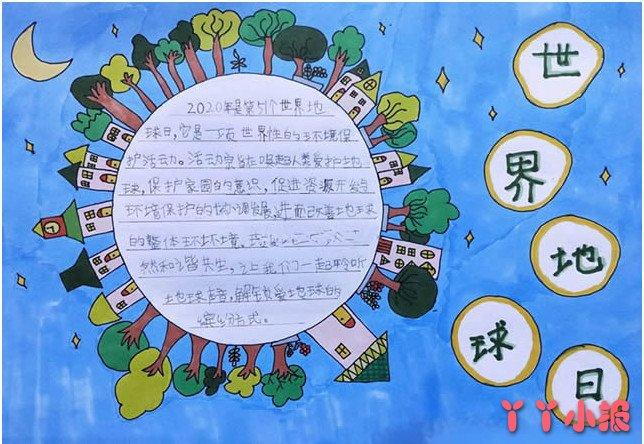 世
界
地
球
日
2020年是第51个世界地
球日,它是一项世界性的环境保
护活动。活动宗旨在唤起人类爱护地
球,保护家园的意识,促进资源开发与
环境保护的协调发展,进而改善地球
的整体环境。
然和谐共生,让我们一起聆听
地球声音,解锁爱地球的
缤纷方式。
丫丫小报